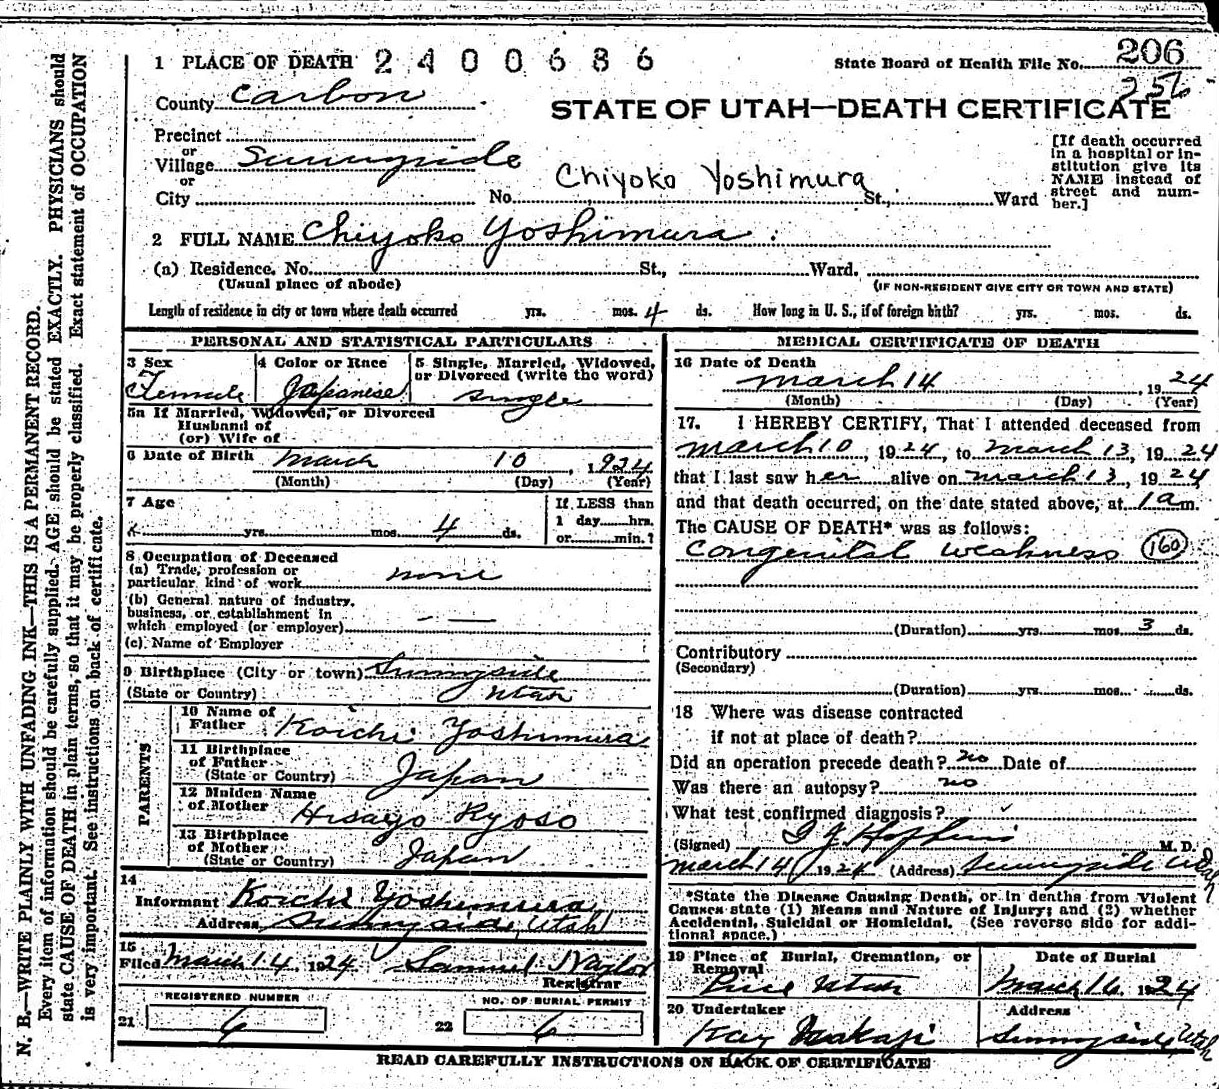 1 PLACE OF DEATH 2400686
State Board of Health File No. 206
256
County Carbon
STATE OF UTAH—DEATH CERTIFICATE
Precinct
or
Village Sunnyside
or
City No. Chiyoko Yoshimura St., Ward
[If death occurred in a hospital or institution give its NAME instead of street and number.]
2 FULL NAME Chiyoko Yoshimura
(a) Residence. No. St., Ward.
(Usual place of abode) (IF NON-RESIDENT GIVE CITY OR TOWN AND STATE)
Length of residence in city or town where death occurred yrs. mos. 4 ds. How long in U. S., if of foreign birth? yrs. mos. ds.
PERSONAL AND STATISTICAL PARTICULARS
3 Sex Female
4 Color or Race Japanese
5 Single, Married, Widowed, or Divorced (write the word) single
5a If Married, Widowed, or Divorced
Husband of
(or) Wife of
6 Date of Birth March 10, 1924
(Month) (Day) (Year)
7 Age
yrs. mos. 4 ds.
If LESS than
1 day hrs.
or min.?
8 Occupation of Deceased
(a) Trade, profession or
particular kind of work none
(b) General nature of industry,
business, or establishment in
which employed (or employer)
(c) Name of Employer
9 Birthplace (City or town) Sunnyside
(State or Country) Utah
PARENTS
10 Name of Father Koichi Yoshimura
11 Birthplace of Father (State or Country) Japan
12 Maiden Name of Mother Hisayo Kyoso
13 Birthplace of Mother (State or Country) Japan
14
Informant Koichi Yoshimura
Address Sunnyside, Utah
15
Filed March 14 1924 Samuel Naylor
Registrar
REGISTERED NUMBER
21 6
NO. OF BURIAL PERMIT
22 6
MEDICAL CERTIFICATE OF DEATH
16 Date of Death
March 14, 1924
(Month) (Day) (Year)
17. I HEREBY CERTIFY, That I attended deceased from
March 10, 1924, to March 13, 1924
that I last saw her alive on March 13, 1924
and that death occurred, on the date stated above, at 1 a m.
The CAUSE OF DEATH* was as follows:
Congenital weakness 160
(Duration) yrs. mos. 3 ds.
Contributory
(Secondary)
(Duration) yrs. mos. ds.
18 Where was disease contracted
if not at place of death?
Did an operation precede death? no Date of
Was there an autopsy? no
What test confirmed diagnosis?
(Signed) M. D.
March 14, 1924 (Address) Sunnyside Utah
*State the Disease Causing Death, or in deaths from Violent
Causes state (1) Means and Nature of Injury; and (2) whether
Accidental, Suicidal or Homicidal. (See reverse side for addi-
tional space.)
19 Place of Burial, Cremation, or Removal Price Utah
Date of Burial March 16 1924
20 Undertaker Kay
Address Sunnyside, Utah
READ CAREFULLY INSTRUCTIONS ON BACK OF CERTIFICATE
N. B.—WRITE PLAINLY WITH UNFADING INK—THIS IS A PERMANENT RECORD.
Every item of information should be carefully supplied. AGE should be stated EXACTLY. PHYSICIANS should
state CAUSE OF DEATH in plain terms, so that it may be properly classified. Exact statement of OCCUPATION
is very important. See instructions on back of certificate.